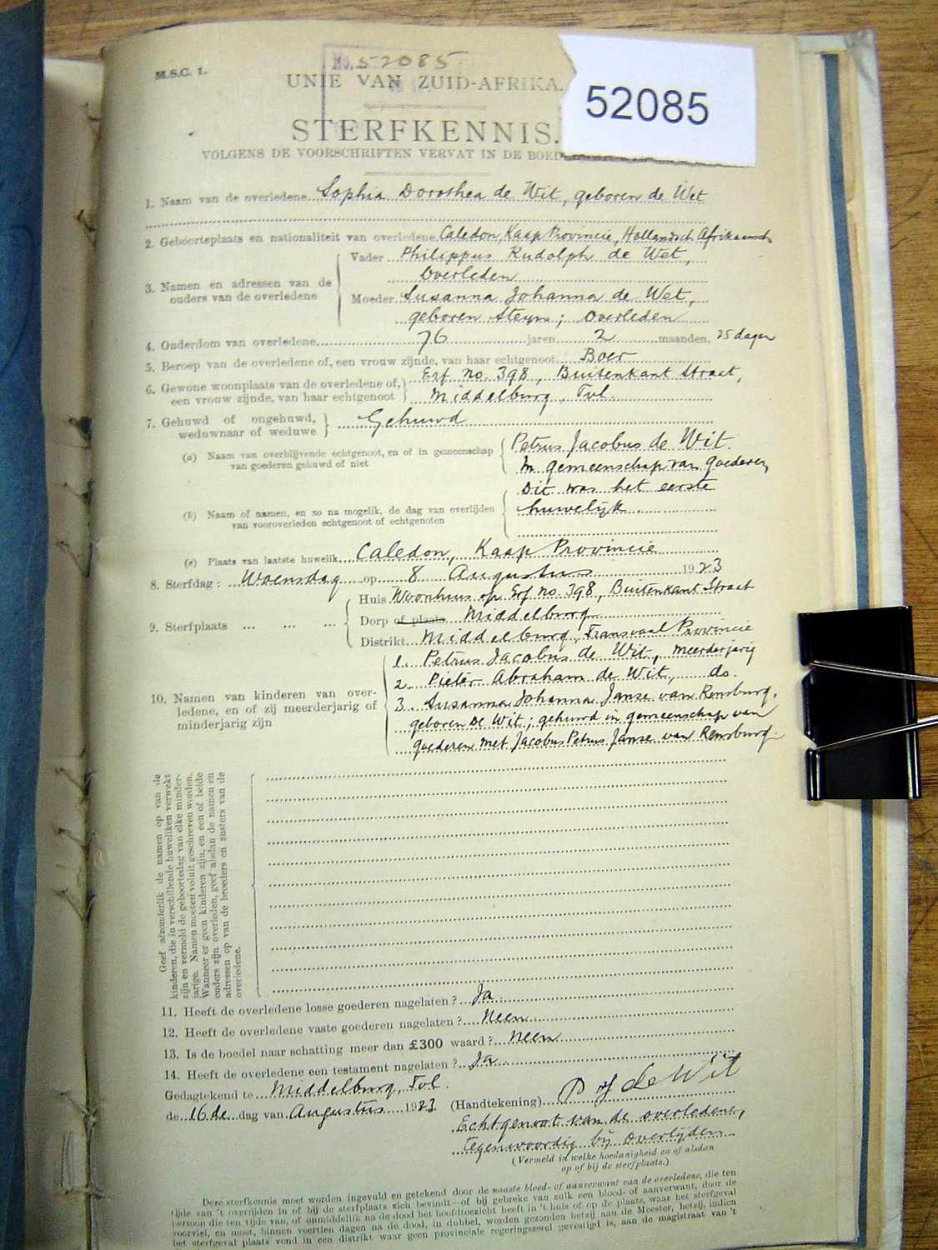 M.S.C. 1.
No. 52085
52085
UNIE VAN ZUID-AFRIKA.
STERFKENNIS.
VOLGENS DE VOORSCHRIFTEN VERVAT IN DE BOED
1. Naam van de overledene Sophia Dorothea de Wit, geboren de Wet
2. Geboorteplaats en nationaliteit van overledene Caledon, Kaap Provincie, Hollandsch Afrikaansch
3. Namen en adressen van de ouders van de overledene
Vader Philippus Rudolph de Wet,
Overleden
Moeder Susanna Johanna de Wet,
geboren Steyn; overleden
4. Ouderdom van overledene 76 jaren 2 maanden. 25 dagen
5. Beroep van de overledene of, een vrouw zijnde, van haar echtgenoot Boer
6. Gewone woonplaats van de overledene of, Erf no. 398, Buitenkant Straat,
een vrouw zijnde, van haar echtgenoot Middelburg, Tvl.
7. Gehuwd of ongehuwd, weduwnaar of weduwe Gehuwd
(a) Naam van overblijvende echtgenoot, en of in gemeenschap van goederen gehuwd of niet
Petrus Jacobus de Wit.
In gemeenschap van goederen
Dit was het eerste
huwelijk.
(b) Naam of namen, en zo na mogelik, de dag van overlijden
van vooroverleden echtgenoot of echtgenoten
(c) Plaats van laatste huwelik Caledon, Kaap Provincie
8. Sterfdag: Woensdag op 8 Augustus 1923
9. Sterfplaats ... ... ...
Huis Woonhuis op Erf no. 398, Buitenkant Straat
Dorp of plaats Middelburg
Distrikt Middelburg, Transvaal Provincie
10. Namen van kinderen van over-
ledene, en of zij meerderjarig of
minderjarig zijn
1. Petrus Jacobus de Wit, meerderjarig
2. Pieter Abraham de Wit, do.
3. Susanna Johanna Janse van Rensburg,
geboren De Wit; gehuwd in gemeenschap van
goederen met Jacobus Petrus Janse van Rensburg.
Geef afzonderlik de namen op van de
kinderen, die in verschillende huweliken verwekt
zijn en vermeld de geboortedag van elke minder-
jarige. Namen moeten voluit geschreven worden.
Wanneer er geen kinderen zijn, en een of beide
ouders zijn overleden, geef alsdan de namen en
adressen op van de broeders en zusters van de
overledene.
11. Heeft de overledene losse goederen nagelaten? Ja
12. Heeft de overledene vaste goederen nagelaten? Neen
13. Is de boedel naar schatting meer dan £300 waard? Neen
14. Heeft de overledene een testament nagelaten? Ja
Gedagtekend te Middelburg, Tvl.
de 16de dag van Augustus 1923
(Handtekening) P J de Wit
Echtgenoot van de overledene,
tegenwoordig bij overlijden
(Vermeld in welke hoedanigheid en of alsdan
op of bij de sterfplaats.)
Deze sterfkennis moet worden ingevuld en getekend door de naaste bloed- of aanverwant van de overledene, die ten
tijde van 't overlijden in of bij de sterfplaats zich bevindt—of bij gebreke van zulk een bloed- of aanverwant, door de
persoon die ten tijde van, of onmiddellik na de dood het hoofdtoezicht heeft in 't huis of op de plaats, waar het sterfgeval
voorviel, en moet, binnen veertien dagen na de dood, in dubbel, worden gezonden hetzij aan de Meester, hetzij, indien
het sterfgeval plaats vond in een distrikt waar geen provinciale regeringszetel gevestigd is, aan de magistraat van 't